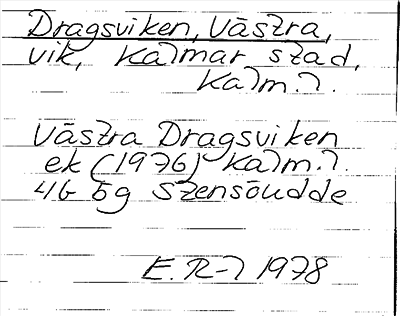 Dragsviken, Västra,
vik, Kalmar stad,
Kalm. l.
Västra Dragsviken
ek (1976) Kalm. l.
4G 5g Stensöudde
E. R-l 1978